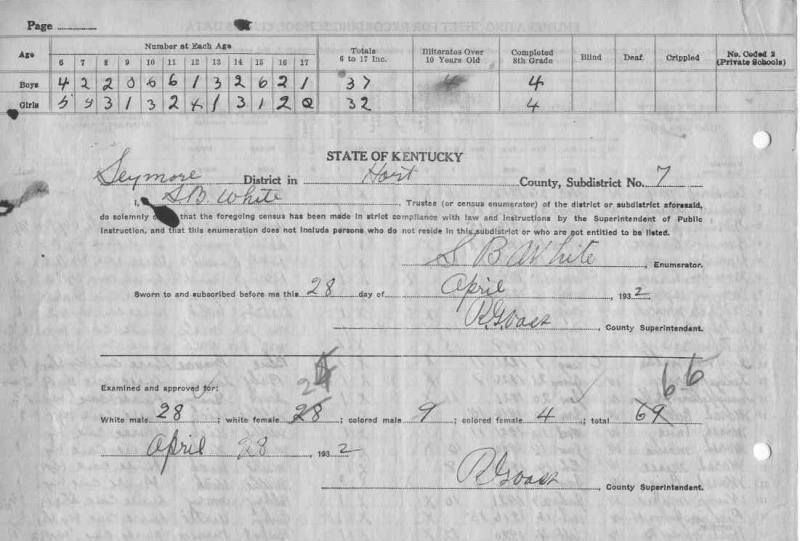 Page
Age Number at Each Age Totals 6 to 17 Inc. Illiterates Over 10 Years Old Completed 8th Grade Blind Deaf Crippled No. Coded 2 (Private Schools)
6 7 8 9 10 11 12 13 14 15 16 17
Boys 4 2 2 0 6 6 1 3 2 6 2 1 37 4 4
Girls 5 9 3 1 3 2 4 1 3 1 2 0 32 4
STATE OF KENTUCKY
Seymore District in Hart County, Subdistrict No. 7
I, S.B. White, Trustee (or census enumerator) of the district or subdistrict aforesaid,
do solemnly that the foregoing census has been made in strict compliance with law and instructions by the Superintendent of Public
Instruction, and that this enumeration does not include persons who do not reside in this subdistrict or who are not entitled to be listed.
S. B. White, Enumerator.
Sworn to and subscribed before me this 28 day of April, 1932
, County Superintendent.
Examined and approved for:
66
White male 28; white female 28; colored male 9; colored female 4; total 69
April 28, 1932
, County Superintendent.